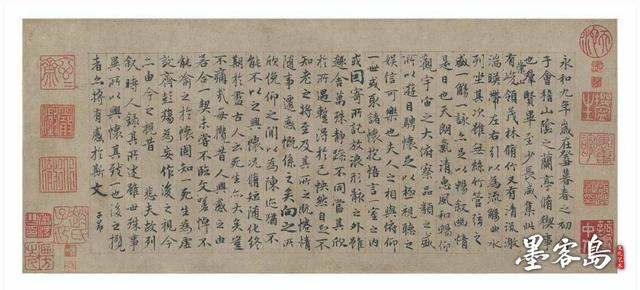 永和九年歲在癸丑暮春之初會
于會稽山陰之蘭亭脩禊事
也羣賢畢至少長咸集此地
有崇山峻領茂林脩竹又有清流激
湍暎帶左右引以為流觴曲水
列坐其次雖無絲竹管弦之
盛一觴一詠亦足以暢敘幽情
是日也天朗氣清惠風和暢仰
觀宇宙之大俯察品類之盛
所以遊目騁懷足以極視聽之
娛信可樂也夫人之相與俯仰
一世或取諸懷抱悟言一室之內
或因寄所託放浪形骸之外雖
趣舍萬殊靜躁不同當其欣
於所遇暫得於己快然自足不
知老之將至及其所之既惓情
隨事遷感慨係之矣向之所
欣俛仰之間以為陳迹猶不
能不以之興懷況脩短隨化終
期於盡古人云死生亦大矣豈
不痛哉每攬昔人興感之由
若合一契未嘗不臨文嗟悼不
能喻之於懷固知一死生為虛
誕齊彭殤為妄作後之視今
亦由今之視昔 悲夫故列
敘時人錄其所述雖世殊事
異所以興懷其致一也後之攬
者亦將有感於斯文
子昂
墨客島